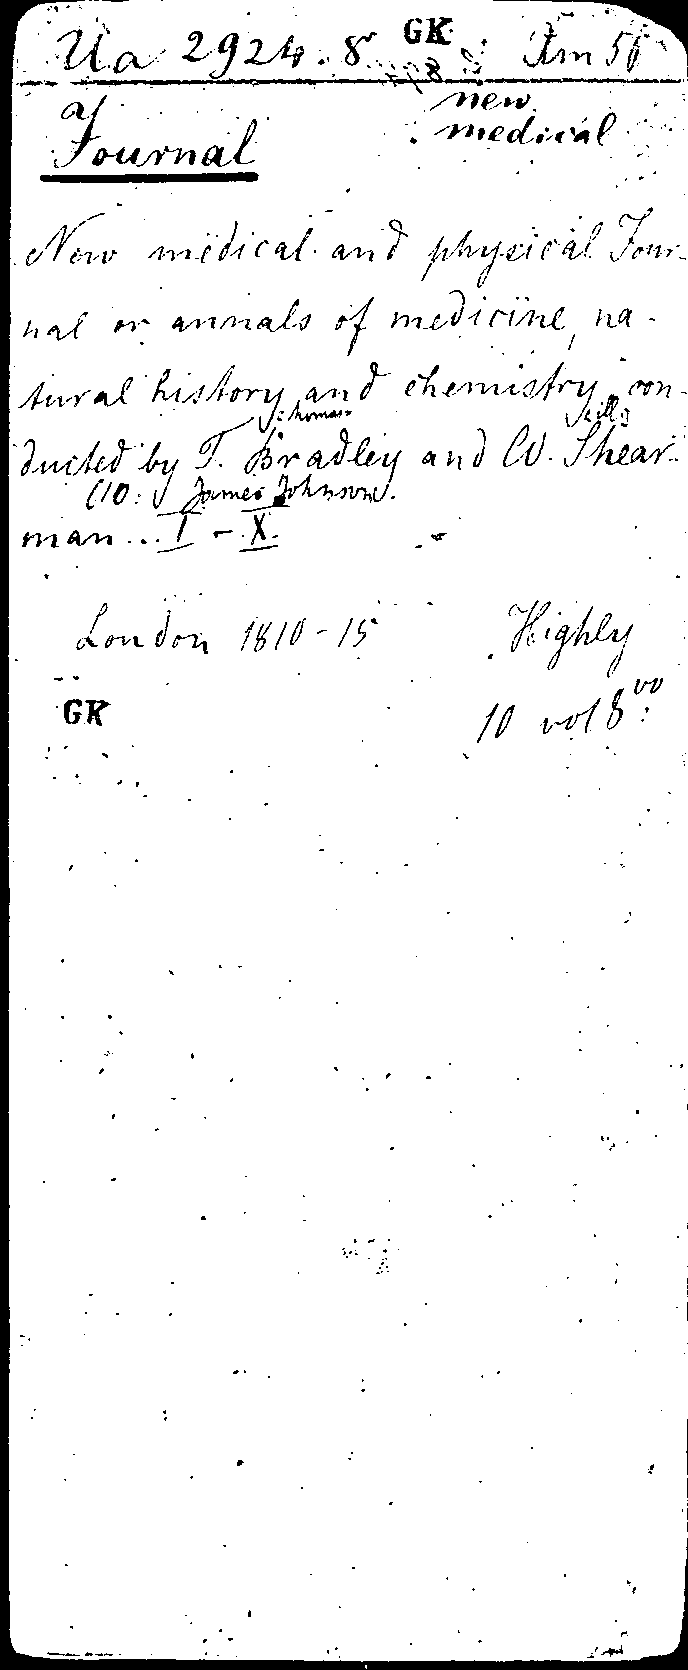 Ua 2924. 8º GK
a/ new
Journal medical
New medical and physical Jour-
nal or annals of medicine, na-
tural history and chemistry, con-
:homas
ducted by T. Bradley and W. Shear-
(10: James Johnson.
man... I - X.
London 1810-15 Highly
GK 10 vol 8vo